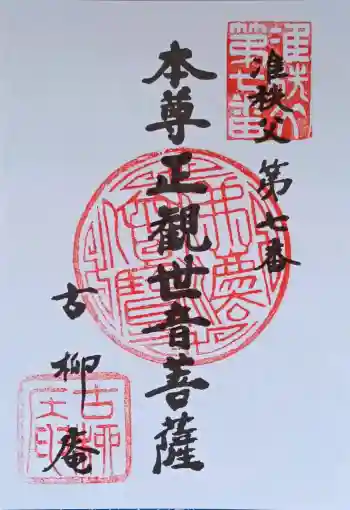 准秩父 第七番
本尊正観世音菩薩
古柳庵
准秩父
第七番